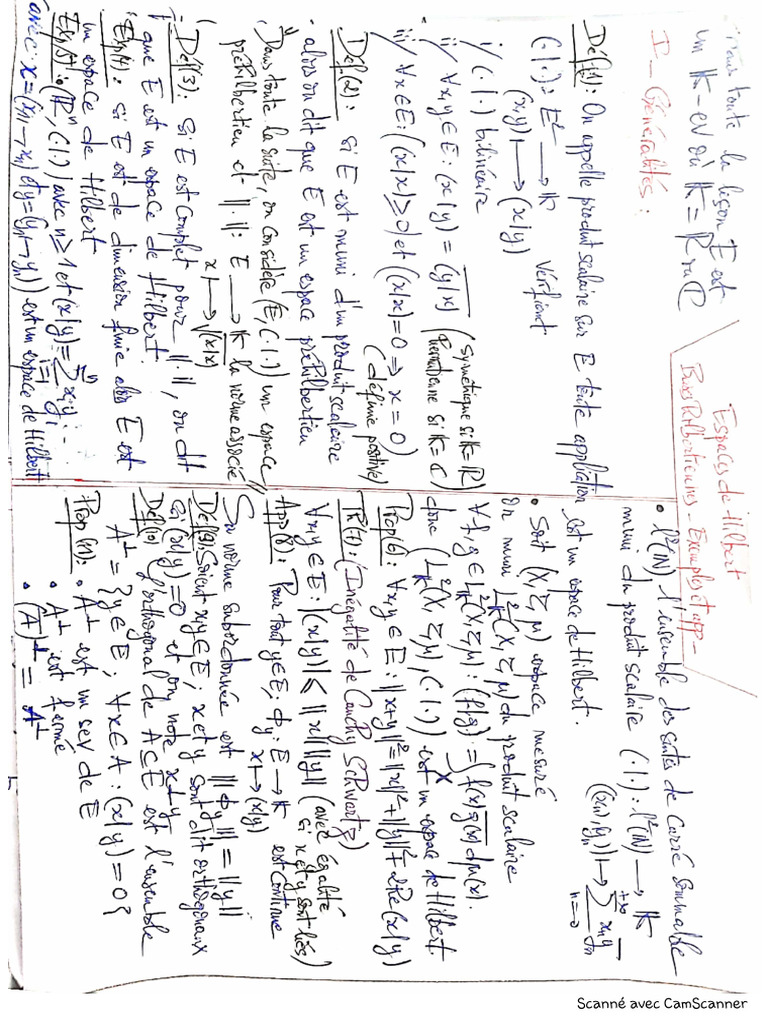 Espaces de Hilbert
Bases Hilbertiennes. Exemples et app-
Dans toute la leçon E est
un K-ev où K = R ou C
I _ Généralités :
Déf(1): On appelle produit scalaire sur E toute application
(.|.) : E² → K vérifiant
(x,y) ↦ (x|y)
i/ (.|.) bilinéaire
ii/ ∀x,y ∈ E : (x|y) = \overline{(y|x)} (symétrique si K=R) (hermitienne si K=C)
iii/ ∀x∈E : (x|x) ≥ 0 et ((x|x)=0 ⇒ x=0) (définie positive)
Déf(2): Si E est muni d'un produit scalaire
alors on dit que E est un espace préhilbertien
Dans toute la suite, on considère (E,(.|.)) un espace
préhilbertien et ||.|| : E → K la norme associé
x ↦ √(x|x)
Déf(3): Si E est complet pour ||.||, on dit
que E est un espace de Hilbert.
Ex(4): Si E est de dimension finie alors E est
un espace de Hilbert
Ex(5): (Rⁿ,(.|.)) avec n≥1 et (x|y) = Σ_{i=1}^{n} xᵢyᵢ
avec x=(x₁,→,xₙ) et y=(y₁→yₙ)) est un espace de Hilbert
• l²(N) l'ensemble des suites de carré sommable
muni du produit scalaire (.|.) : l²(N) → K
((xₙ),(yₙ)) ↦ Σ_{n=0}^{+∞} xₙ\overline{yₙ}
est un espace de Hilbert.
• Soit (X,τ,μ) espace mesuré
On muni L²_K(X,τ,μ) du produit scalaire
∀f,g ∈ L²_K(X,τ,μ) : (f|g) = ∫_X f(x)\overline{g(x)} dμ(x).
donc (L²_K(X,τ,μ),(.|.)) est un espace de Hilbert.
Prop(6): ∀x,y ∈ E : ||x+y||² = ||x||² + ||y||² + 2Re(x|y)
Th(7): (Inégalité de Cauchy Schwartz)
∀x,y∈E : |(x|y)| ≤ ||x|| ||y|| (avec égalité si x et y sont liés)
App(8): Pour tout y∈E ; φy : E → K est continue
x ↦ (x|y)
Sa norme subordonnée est ||φy|| = ||y||
Déf(9): Soient x,y∈E ; x et y sont dit orthogonaux
si (x|y)=0 et on note x⊥y
Déf(10) l'orthogonal de A⊆E est l'ensemble
A^⊥ = {y∈E ; ∀x∈A : (x|y)=0}
Prop(11): • A^⊥ est un sev de E
• A^⊥ est fermé
• (\overline{A})^⊥ = A^⊥
Scanné avec CamScanner